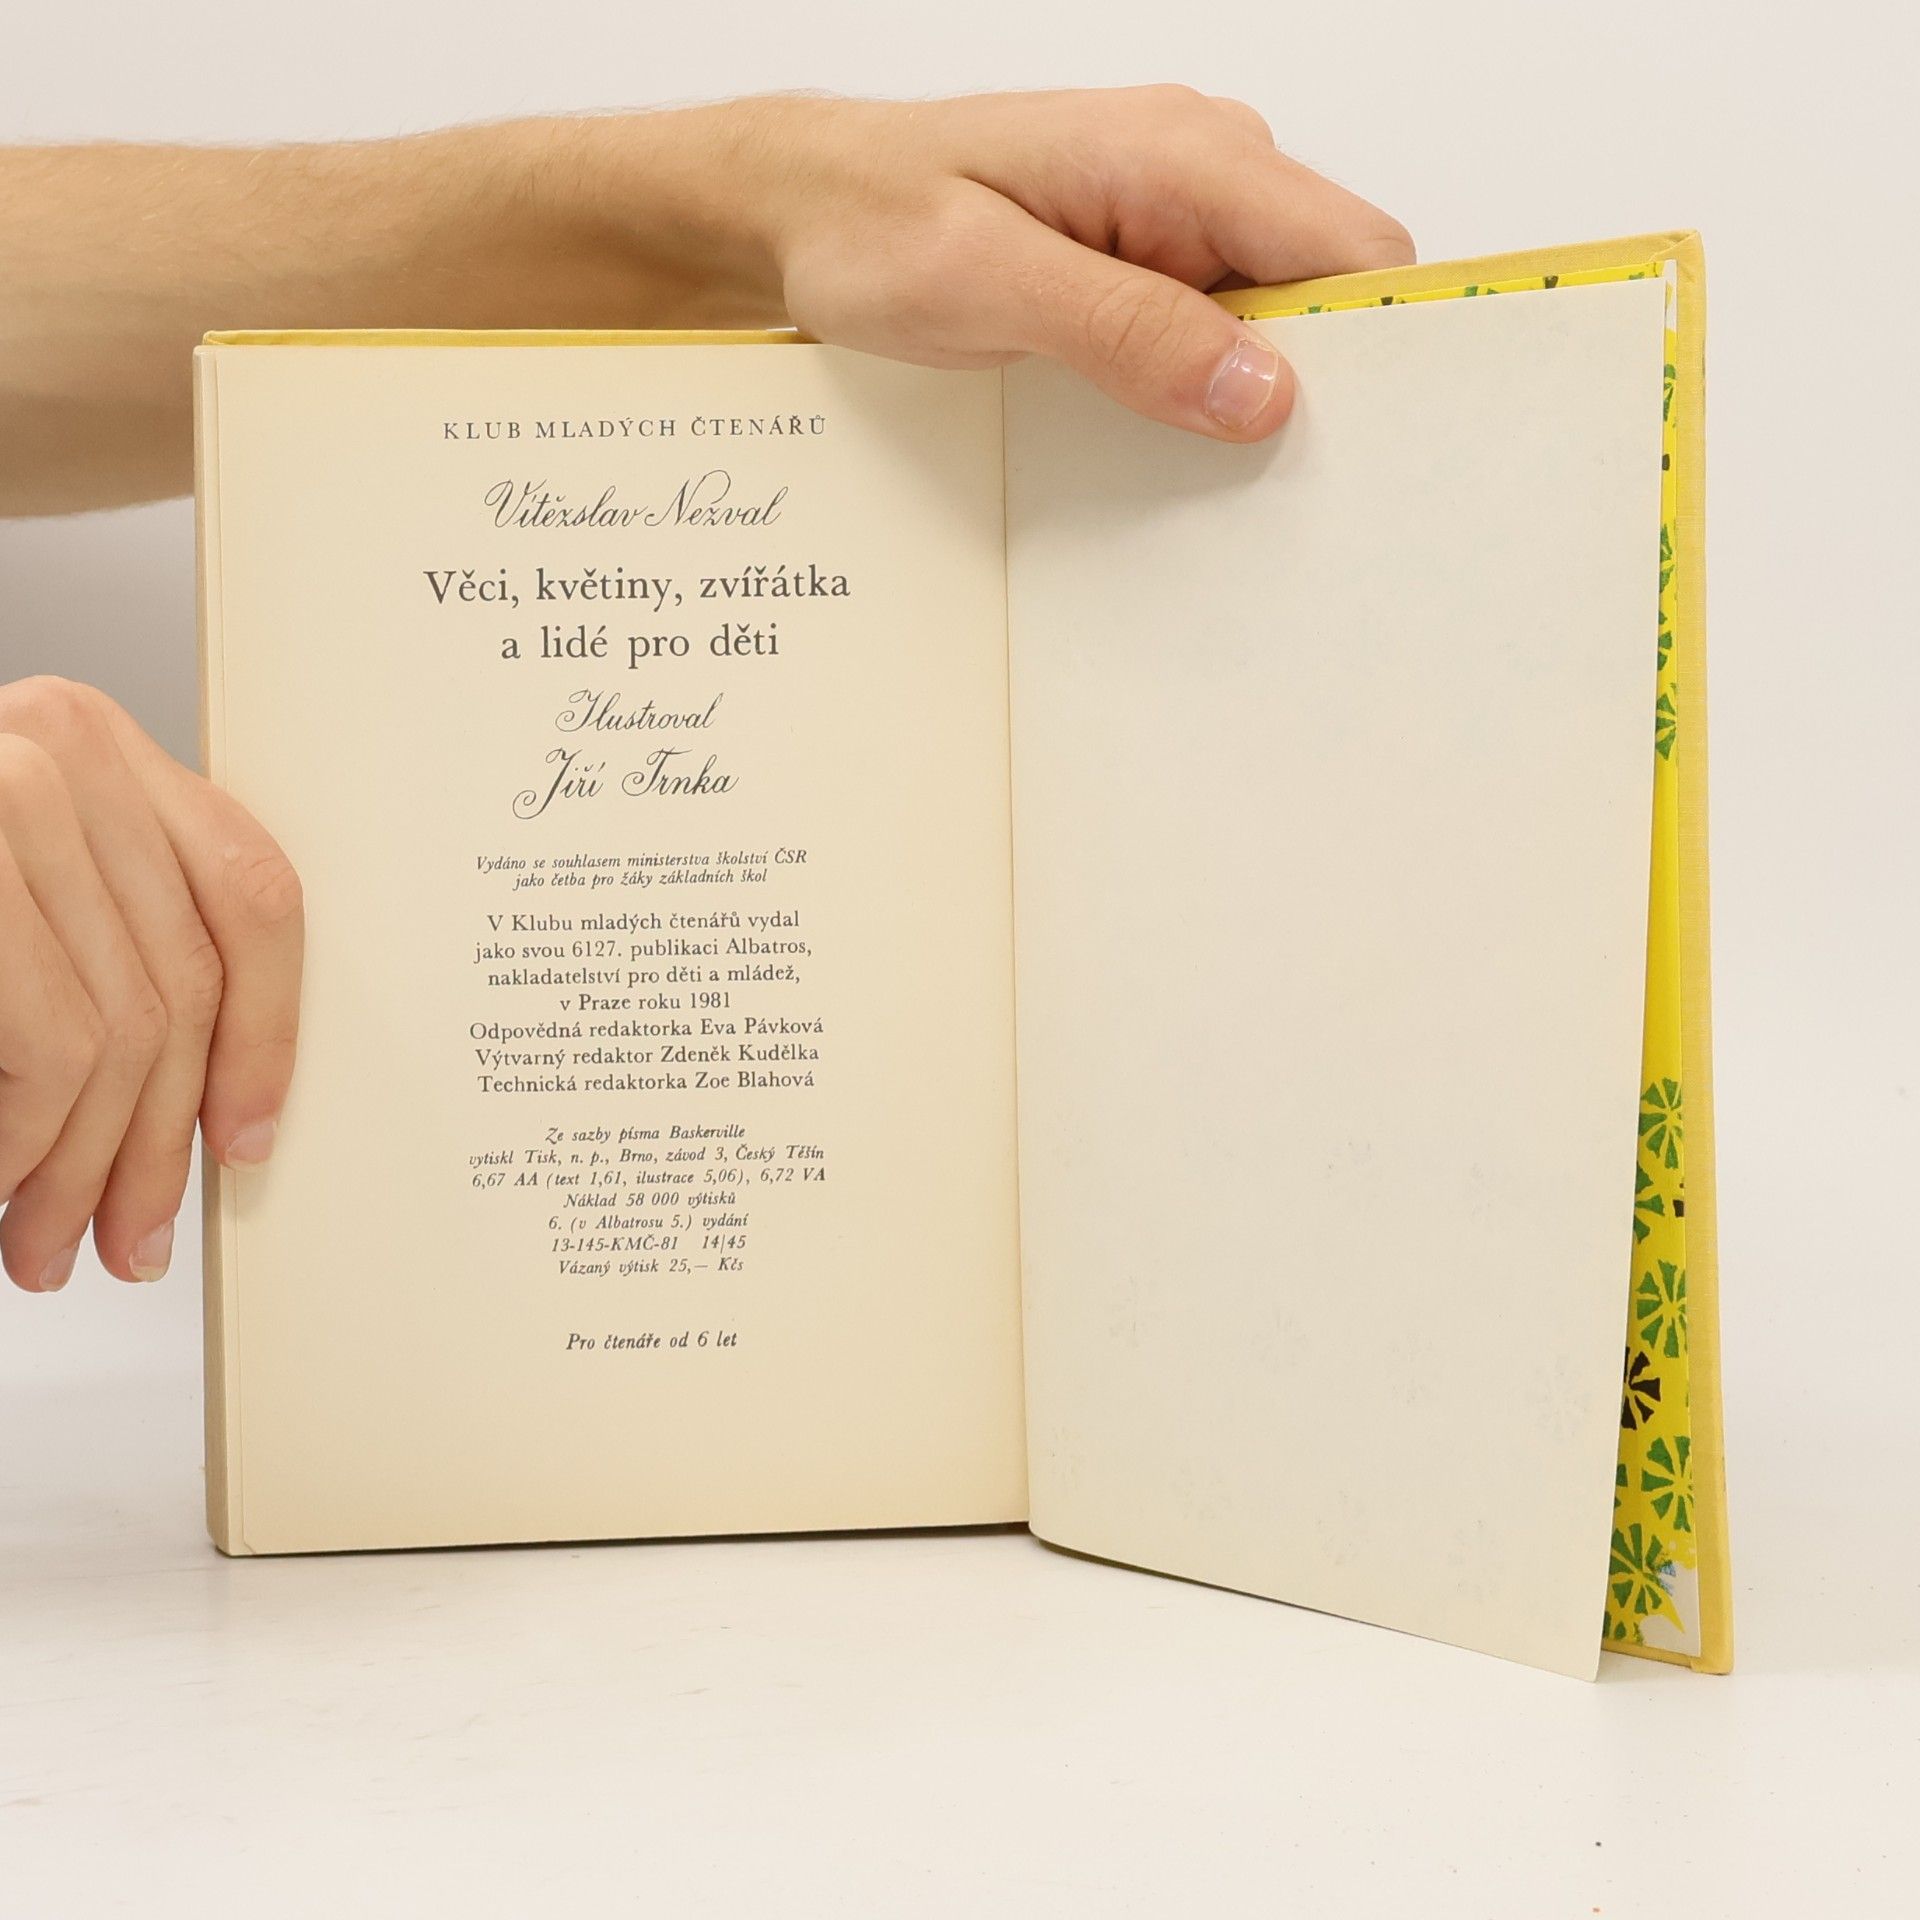 KLUB MLADÝCH ČTENÁŘŮ
Vítězslav Nezval
Věci, květiny, zvířátka
a lidé pro děti
Ilustroval
Jiří Trnka
Vydáno se souhlasem ministerstva školství ČSR
jako četba pro žáky základních škol
V Klubu mladých čtenářů vydal
jako svou 6127. publikaci Albatros,
nakladatelství pro děti a mládež,
v Praze roku 1981
Odpovědná redaktorka Eva Pávková
Výtvarný redaktor Zdeněk Kudělka
Technická redaktorka Zoe Blahová
Ze sazby písma Baskerville
vytiskl Tisk, n. p., Brno, závod 3, Český Těšín
6,67 AA (text 1,61, ilustrace 5,06), 6,72 VA
Náklad 58 000 výtisků
6. (v Albatrosu 5.) vydání
13-145-KMČ-81 14|45
Vázaný výtisk 25,— Kčs
Pro čtenáře od 6 let